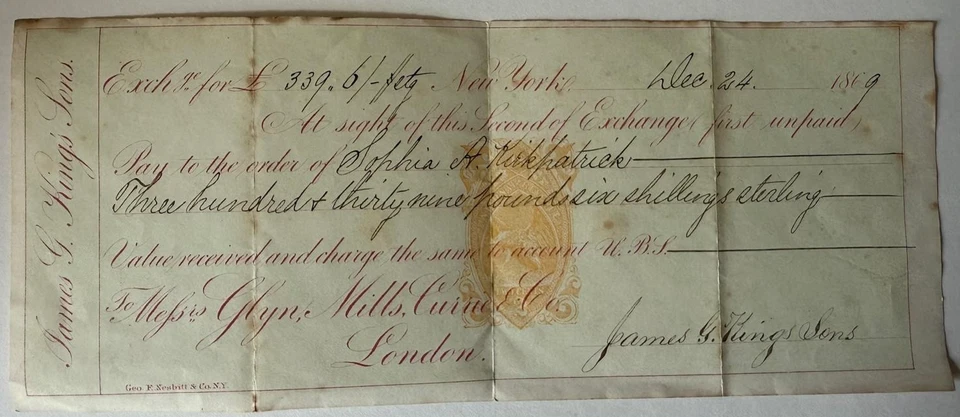 James G. King's Sons.
Exchge for £ 339. 6/- Stg. New York, Dec. 24. 1869
At sight of this Second of Exchange (first unpaid)
Pay to the order of Sophia A. Kirkpatrick
Three hundred & thirty nine pounds six shillings sterling
Value received and charge the same to account U. B. S.
To Messrs Glyn, Mills, Currie & Co.
London.
James G. King's Sons
Geo. F. Nesbitt & Co. N.Y.